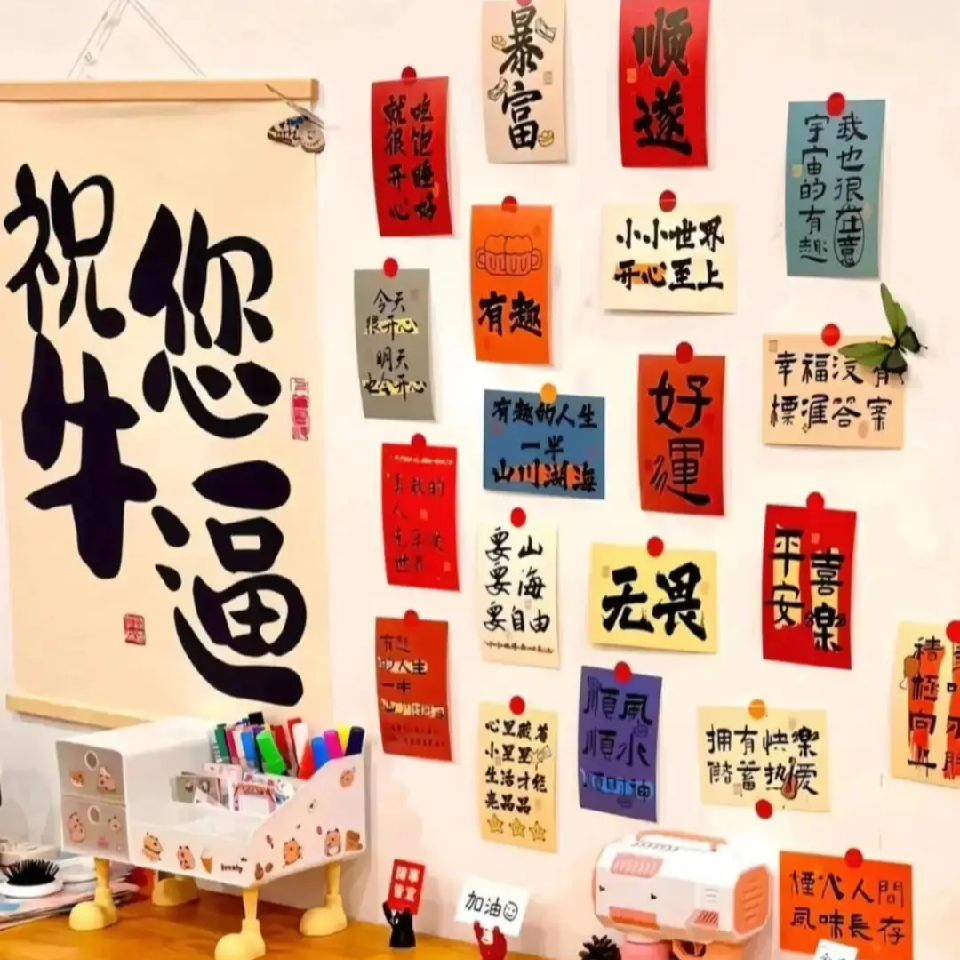 祝您
牛逼
暴富
顺遂
吃饱睡好
就很开心
我也很在意
宇宙的有趣
小小世界
开心至上
有趣
今天
很开心
明天
也会开心
有趣的人生
一半
山川湖海
好運
幸福没有
標准答案
勇敢的
人
先享受
世界
要山
要海
要自由
无畏
平安
喜樂
有趣
的人生
一半
順風
順水
順財神
心里藏着
小星星
生活才能
亮晶晶
拥有快樂
储蓄热爱
積極向上
諸事皆宜
加油
煙火人間
風味長存